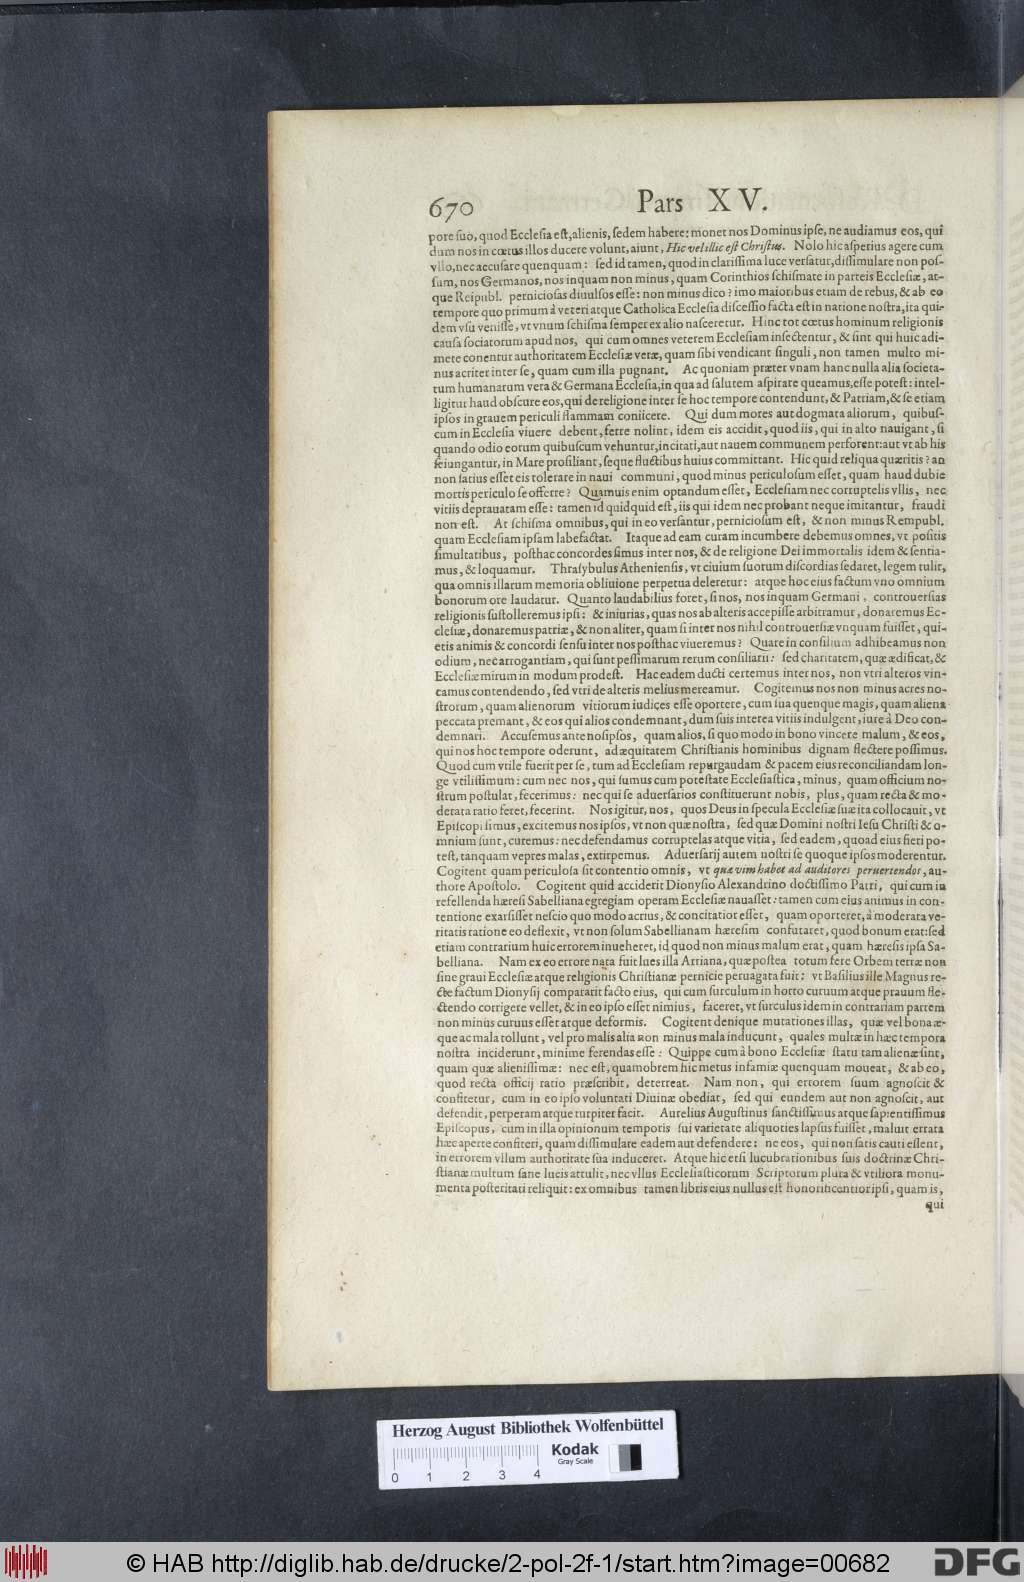 670 Pars XV.
pore suo, quod Ecclesia est, alienis, sedem habere: monet nos Dominus ipse, ne audiamus eos, qui
dum nos in cœtus illos ducere volunt, aiunt, Hic vel illic est Christus. Nolo hic asperius agere cum
vllo, nec accusare quenquam: sed id tamen, quod in clarissima luce versatur, dissimulare non pos-
sum, nos Germanos, nos inquam non minus, quam Corinthios schismate in parteis Ecclesiæ, at-
que Reipubl. perniciosas diuulsos esse: non minus dico? imo maioribus etiam de rebus, & ab eo
tempore quo primum à veteri atque Catholica Ecclesia discessio facta est in natione nostra, ita qui-
dem vsu venisse, vt vnum schisma semper ex alio nasceretur. Hinc tot cœtus hominum religionis
causa sociatorum apud nos, qui cum omnes veterem Ecclesiam insectentur, & sint qui huic adi-
mere conentur authoritatem Ecclesiæ veræ, quam sibi vendicant singuli, non tamen multo mi-
nus acriter inter se, quam cum illa pugnant. Ac quoniam præter vnam hanc nulla alia societa-
tum humanarum vera & Germana Ecclesia, in qua ad salutem aspirare queamus, esse potest: intel-
ligitur haud obscure eos, qui de religione inter se hoc tempore contendunt, & Patriam, & se etiam
ipsos in grauem periculi flammam coniicere. Qui dum mores aut dogmata aliorum, quibus-
cum in Ecclesia viuere debent, ferre nolint, idem eis accidit, quod iis, qui in alto nauigant, si
quando odio eorum quibuscum vehuntur, incitati, aut nauem communem perforent: aut vt ab his
seiungantur, in Mare prosiliant, seque fluctibus huius committant. Hic quid reliqua quæritis? an
non satius esset eis tolerare in naui communi, quod minus periculosum esset, quam haud dubie
mortis periculo se offerre? Quamuis enim optandum esset, Ecclesiam nec corruptelis vllis, nec
vitiis deprauatam esse: tamen id quidquid est, iis qui idem nec probant neque imitantur, fraudi
non est. At schisma omnibus, qui in eo versantur, perniciosum est, & non minus Rempubl.
quam Ecclesiam ipsam labefactat. Itaque ad eam curam incumbere debemus omnes, vt positis
simultatibus, posthac concordes simus inter nos, & de religione Dei immortalis idem & sentia-
mus, & loquamur. Thrasybulus Atheniensis, vt ciuium suorum discordias sedaret, legem tulit,
qua omnis illarum memoria obliuione perpetua deleretur: atque hoc eius factum vno omnium
bonorum ore laudatur. Quanto laudabilius foret, si nos, nos inquam Germani, controuersias
religionis sustolleremus ipsi: & iniurias, quas nos ab alteris accepisse arbitramur, donaremus Ec-
clesiæ, donaremus patriæ, & non aliter, quam si inter nos nihil controuersiæ vnquam fuisset, qui-
etis animis & concordi sensu inter nos posthac viueremus? Quare in consilium adhibeamus non
odium, nec arrogantiam, qui sunt pessimarum rerum consiliarii: sed charitatem, quæ ædificat, &
Ecclesiæ mirum in modum prodest. Hac eadem ducti certemus inter nos, non vtri alteros vin-
camus contendendo, sed vtri de alteris melius mereamur. Cogitemus nos non minus acres no-
strorum, quam alienorum vitiorum iudices esse oportere, cum sua quenque magis, quam aliena
peccata premant, & eos qui alios condemnant, dum suis interea vitiis indulgent, iure à Deo con-
demnari. Accusemus ante nosipsos, quam alios, si quo modo in bono vincere malum, & eos,
qui nos hoc tempore oderunt, ad æquitatem Christianis hominibus dignam flectere possimus.
Quod cum vtile fuerit per se, tum ad Ecclesiam repurgandam & pacem eius reconciliandam lon-
ge vtilissimum: cum nec nos, qui sumus cum potestate Ecclesiastica, minus, quam officium no-
strum postulat, fecerimus: nec qui se aduersarios constituerunt nobis, plus, quam recta & mo-
derata ratio feret, fecerint. Nos igitur, nos, quos Deus in specula Ecclesiæ suæ ita collocauit, vt
Episcopi simus, excitemus nos ipsos, vt non quæ nostra, sed quæ Domini nostri Iesu Christi & o-
mnium sunt, curemus: nec defendamus corruptelas atque vitia, sed eadem, quoad eius fieri po-
test, tanquam vepres malas, extirpemus. Aduersarij autem nostri se quoque ipsos moderentur.
Cogitent quam periculosa sit contentio omnis, vt quæ vim habet ad auditores peruertendos, au-
thore Apostolo. Cogitent quid acciderit Dionysio Alexandrino doctissimo Patri, qui cum in
refellenda hæresi Sabelliana egregiam operam Ecclesiæ nauasset: tamen cum eius animus in con-
tentione exarsisset nescio quo modo acrius, & concitatior esset, quam oporteret, à moderata ve-
ritatis ratione eo deflexit, vt non solum Sabellianam hæresim confutaret, quod bonum erat: sed
etiam contrarium huic errorem inueheret, id quod non minus malum erat, quam hæresis ipsa Sa-
belliana. Nam ex eo errore nata fuit lues illa Arriana, quæ postea totum fere Orbem terræ non
sine graui Ecclesiæ atque religionis Christianæ pernicie peruagata fuit: vt Basilius ille Magnus re-
cte factum Dionysij compararit facto eius, qui cum surculum in horto curuum atque prauum fle-
ctendo corrigere vellet, & in eo ipso esset nimius, faceret, vt surculus idem in contrariam partem
non minus curuus esset atque deformis. Cogitent denique mutationes illas, quæ vel bona æ-
que ac mala tollunt, vel pro malis alia non minus mala inducunt, quales multæ in hæc tempora
nostra inciderunt, minime ferendas esse: Quippe cum à bono Ecclesiæ statu tam alienæ sint,
quam quæ alienissimæ: nec est, quamobrem hic metus infamiæ quenquam moueat, & ab eo,
quod recta officij ratio præscribit, deterreat. Nam non, qui errorem suum agnoscit &
confitetur, cum in eo ipso voluntati Diuinæ obediat, sed qui eundem aut non agnoscit, aut
defendit, perperam atque turpiter facit. Aurelius Augustinus sanctissimus atque sapientissimus
Episcopus, cum in illa opinionum temporis sui varietate aliquoties lapsus fuisset, maluit errata
hæc aperte confiteri, quam dissimulare eadem aut defendere: ne eos, qui non satis cauti essent,
in errorem vllum authoritate sua induceret. Atque hic etsi lucubrationibus suis doctrinæ Chri-
stianæ multum sane lucis attulit, nec vllus Ecclesiasticorum Scriptorum plura & vtiliora monu-
menta posteritati reliquit: ex omnibus tamen libris eius nullus est honorificentior ipsi, quam is,
qui
Herzog August Bibliothek Wolfenbüttel
Kodak
Gray Scale
0 1 2 3 4
© HAB http://diglib.hab.de/drucke/2-pol-2f-1/start.htm?image=00682
DFG